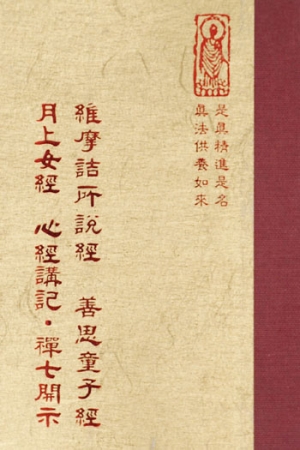 是真精進是名
真法供養如來
維摩詰所說經 善思童子經
月上女經 心經講記·禪七開示